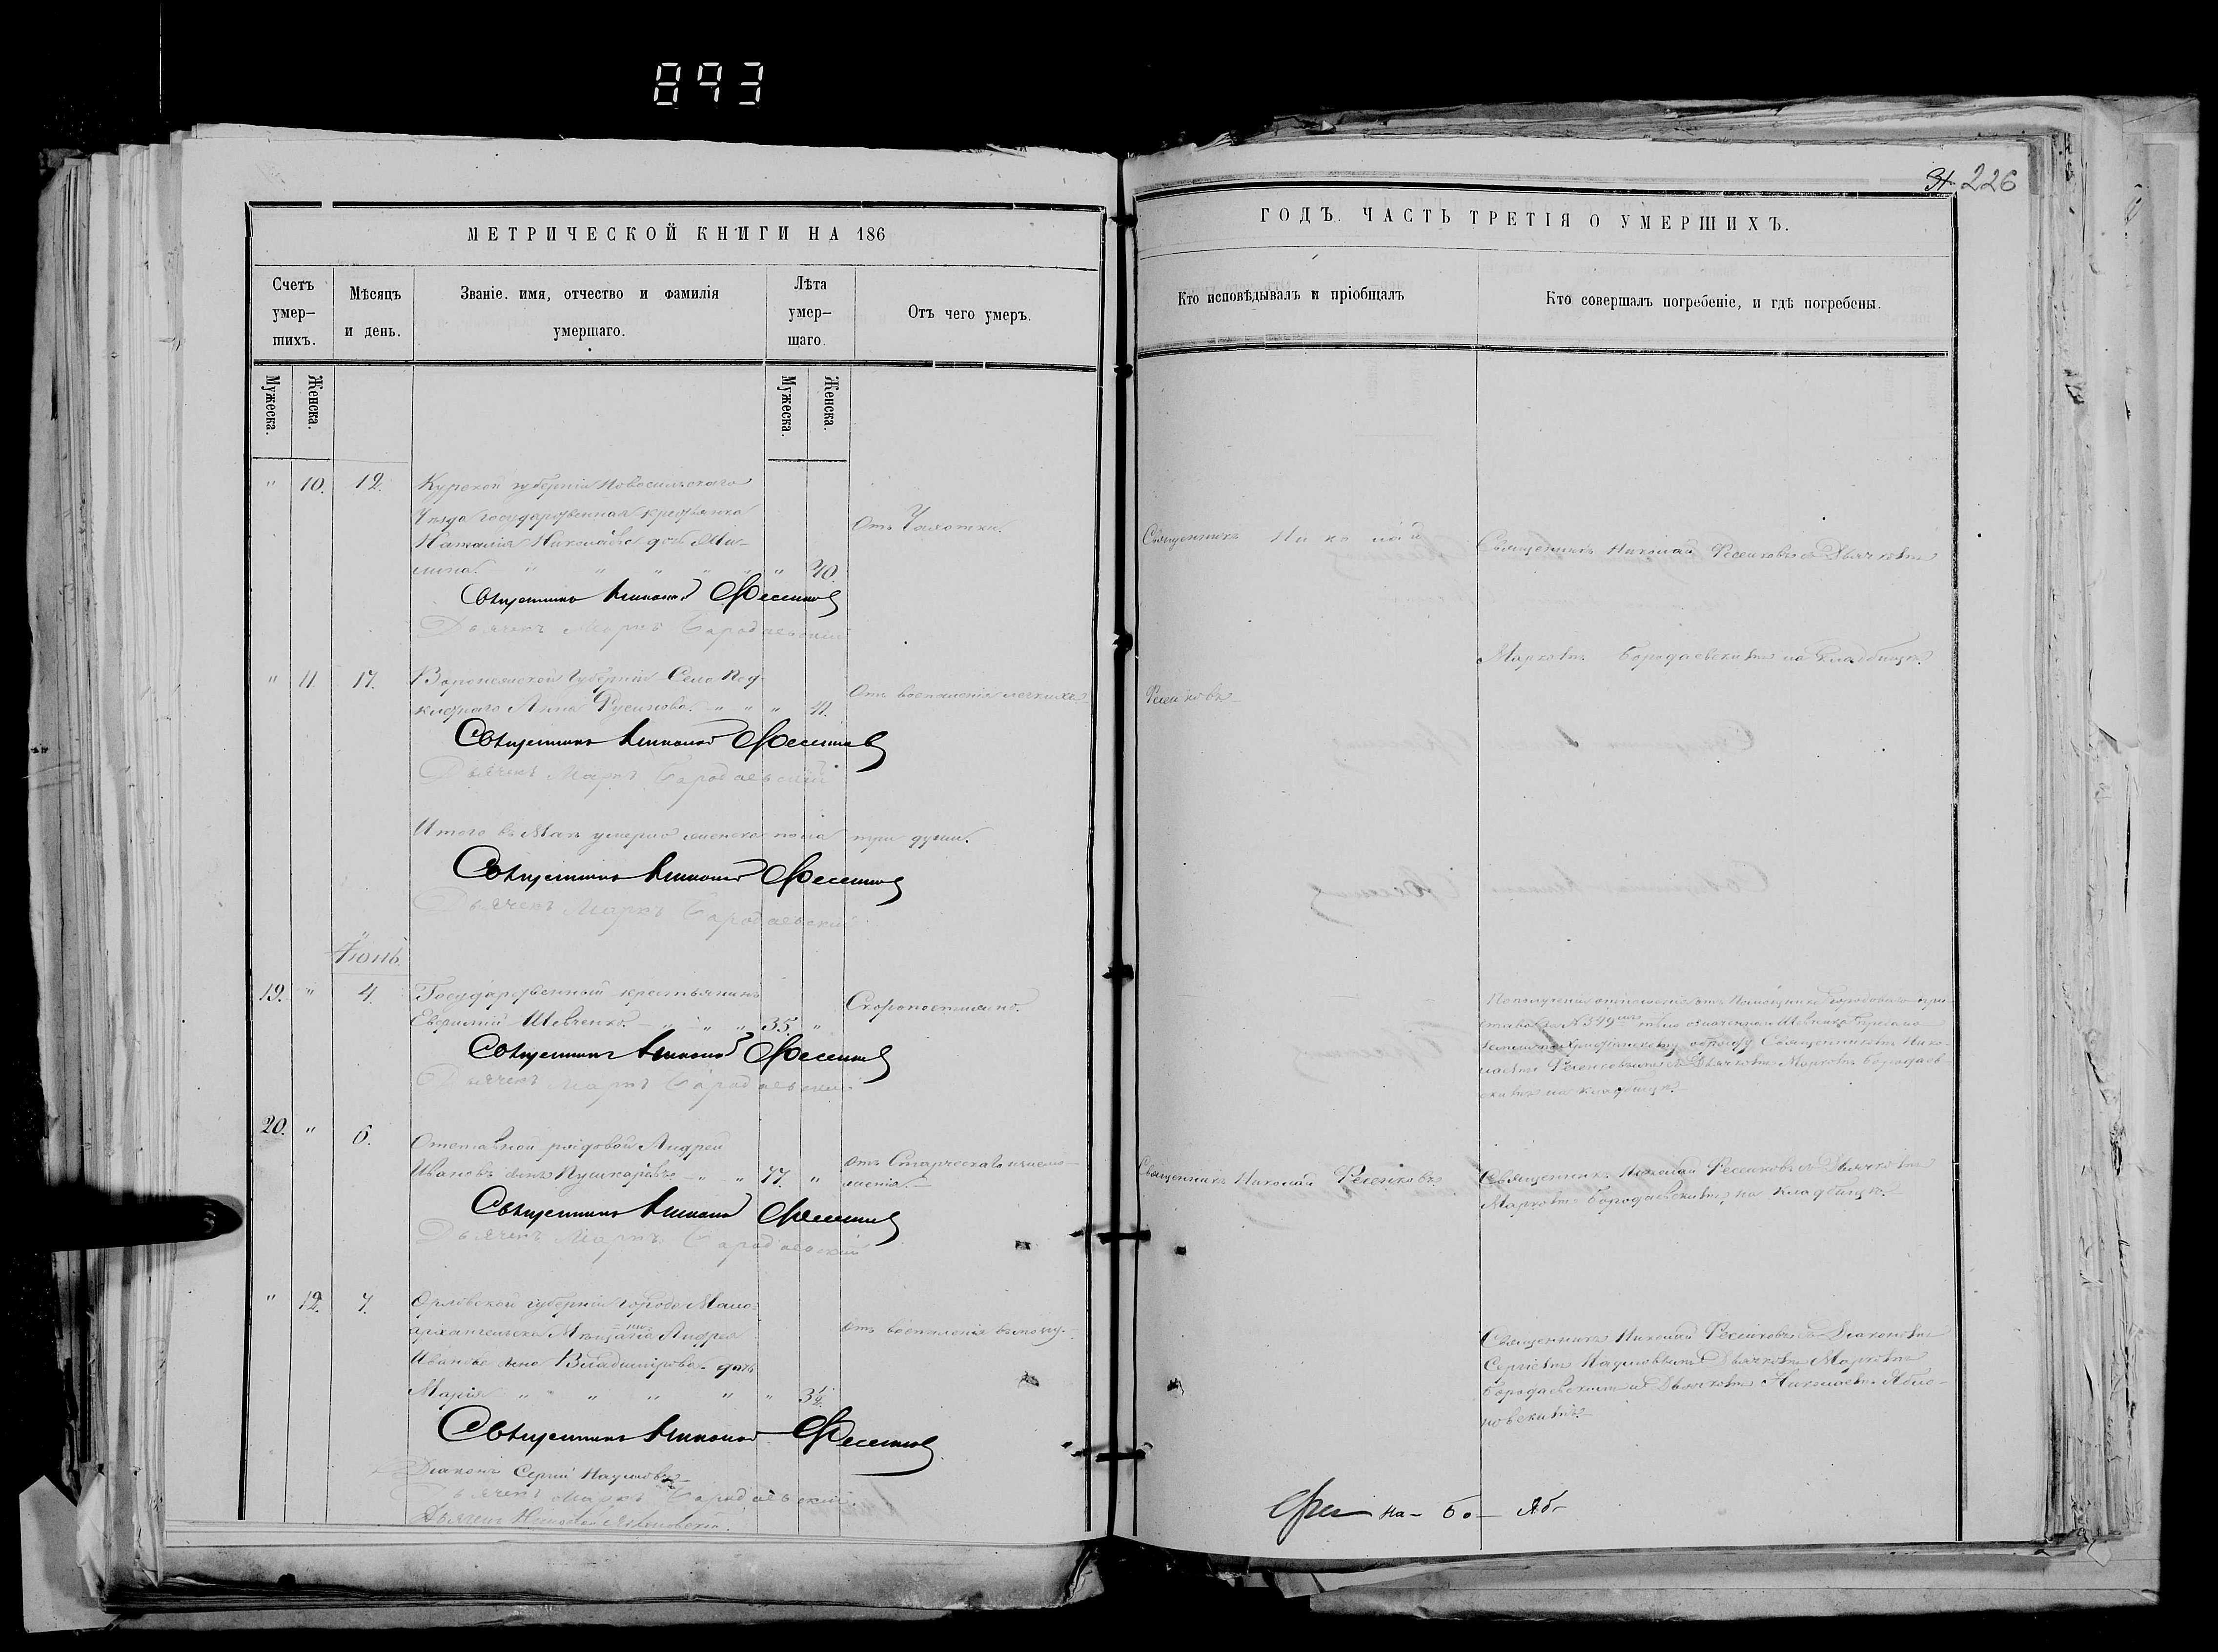 893
МЕТРИЧЕСКОЙ КНИГИ НА 186
Счетъ умер–шихъ.
Мѣсяцъ и день.
Званіе, имя, отчество и фамилія умершаго.
Лѣта умер–шаго.
Отъ чего умеръ.
Мужеска.
Женска.
Мужеска.
Женска.
" 10. 12. Курской губерніи Новосильскаго
Уѣзда государственная крестьянка
Наталія Николаева дочь
" 40.
Отъ Чахотки.
Священникъ Николай Фесенковъ
Дьячекъ Маркъ Бородаевскій
" 11. 17. Воронежской Губерніи Села Под-
Анна Русинова " " " 41.
Отъ воспаленія легкихъ
Священникъ Николай Фесенковъ
Дьячекъ Маркъ Бородаевскій
Итого въ Маѣ умерло женска пола три души.
Священникъ Николай Фесенковъ
Дьячекъ Маркъ Бородаевскій
Іюнь.
19. " 4. Государственный крестьянинъ
Евфимій Шевченко. " " 35. "
Скоропостижно.
Священникъ Николай Фесенковъ
Дьячекъ Маркъ Бородаевскій
20. " 6. Отставной рядовой Андрей
Ивановъ сынъ Пушкаревъ " " 77. "
отъ Старческаго изнемо-
женія.
Священникъ Николай Фесенковъ
Дьячекъ Маркъ Бородаевскій
" 12. 7. Орловской губерніи города Мало-
архангельска Мѣщанина Андрея
Иванова сына Владимірова дочь
Марія " " " " " 3½.
отъ воспаленія въ мозгу.
Священникъ Николай Фесенковъ
Діаконъ Сергій Наумовъ
Дьячекъ Маркъ Бородаевскій.
Дьячекъ Николай Яблоновскій.
31. 226
ГОДЪ. ЧАСТЬ ТРЕТІЯ О УМЕРШИХЪ.
Кто исповѣдывалъ и пріобщалъ
Кто совершалъ погребеніе, и гдѣ погребены.
Священникъ Николай
Фесенковъ
Священникъ Николай Фесенковъ съ Дьячкомъ
Маркомъ Бородаевскимъ на кладбищѣ.
отъ Помощника Городоваго при-
става за № 549 тѣло означеннаго Шевченка предано
землѣ по Христіанскому обряду Священникомъ Нико-
лаемъ Фесенковымъ съ Дьячкомъ Маркомъ Бородаев-
скимъ на кладбищѣ.
Священникъ Николай Фесенковъ
Священникъ Николай Фесенковъ съ Дьячкомъ
Маркомъ Бородаевскимъ на кладбищѣ.
Священникъ Николай Фесенковъ съ Діакономъ
Сергіемъ Наумовымъ Дьячкомъ Маркомъ
Бородаевскимъ и Дьячкомъ Николаемъ Ябло-
новскимъ.
Фес– На– Бо– Яб–